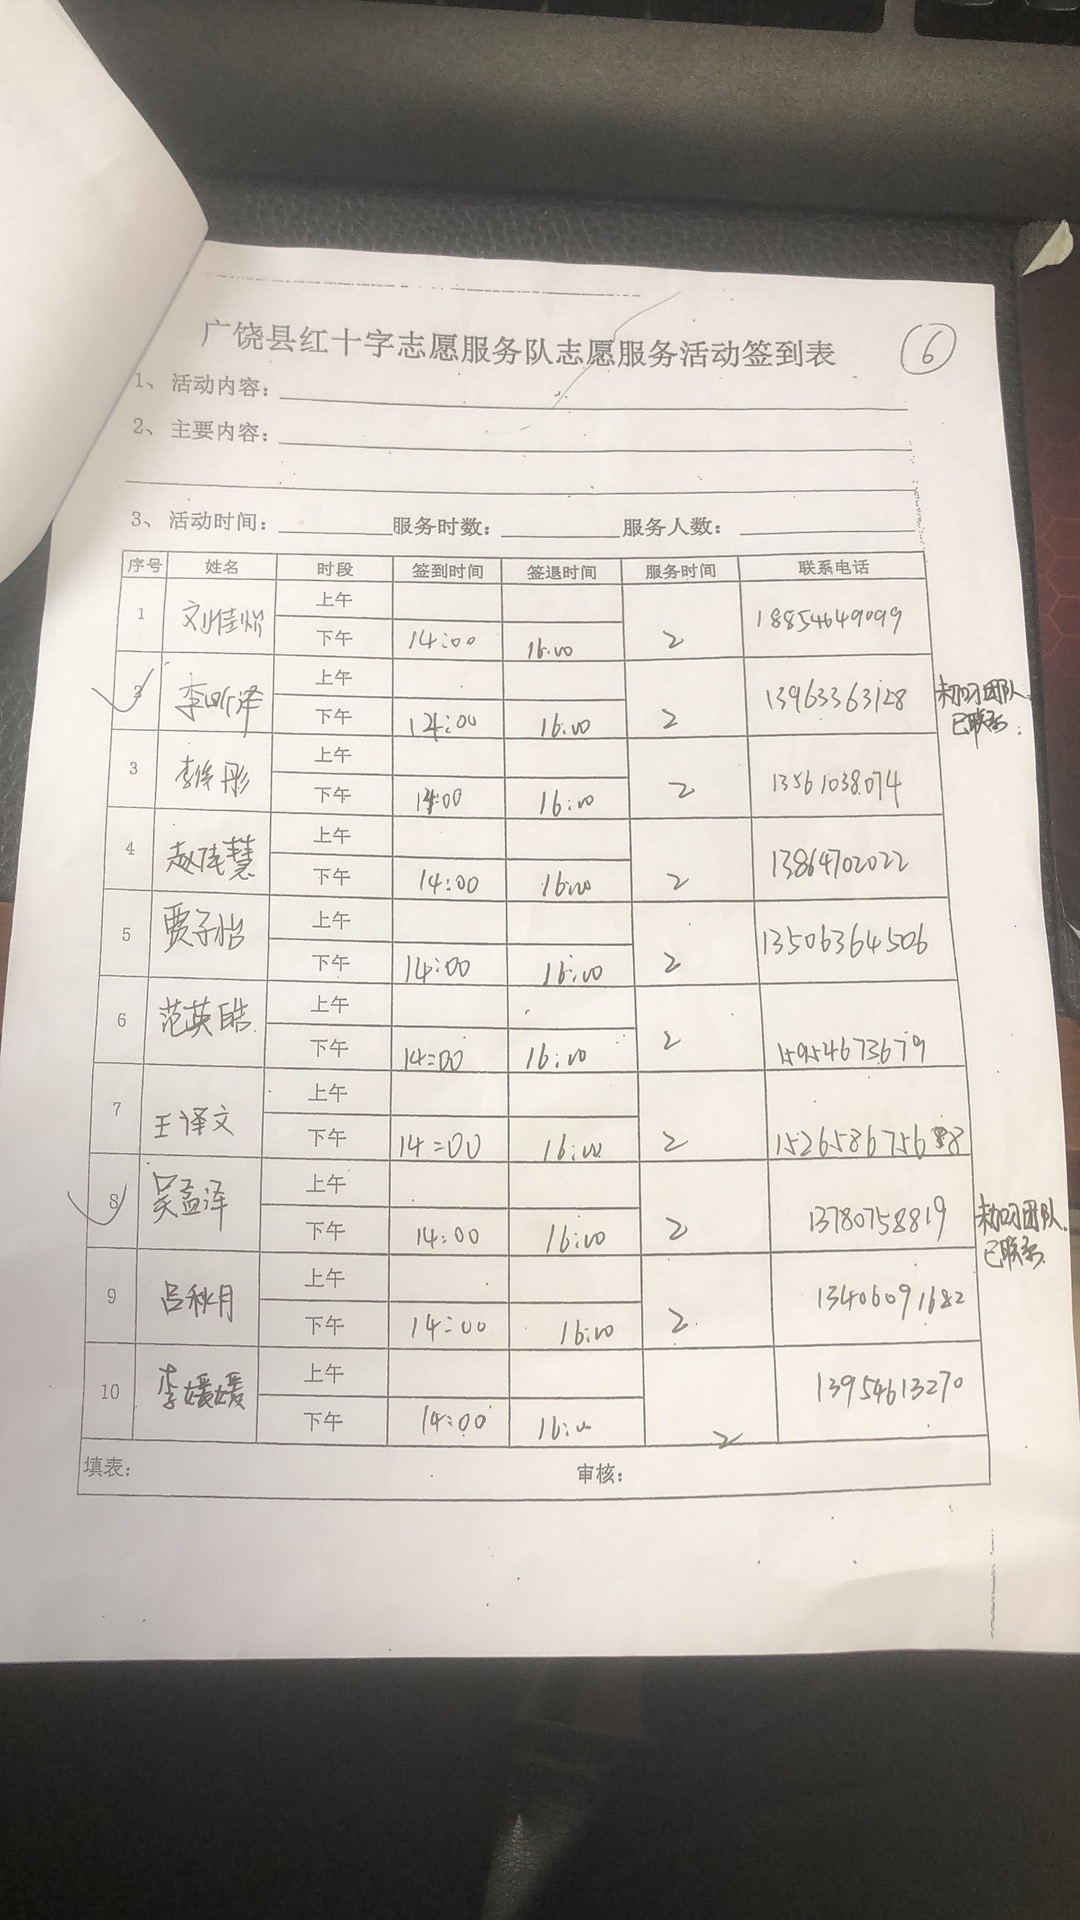 广饶县红十字志愿服务队志愿服务活动签到表 ⑥
1、活动内容：
2、主要内容：
3、活动时间： 服务时数： 服务人数：
序号 姓名 时段 签到时间 签退时间 服务时间 联系电话
1 刘佳 上午
下午 14:00 16:00 2 18854649099
2 李 泽 上午
下午 14:00 16:00 2 13963363128 未加团队
已联系
3 李 彤 上午
下午 14:00 16:00 2 13561038074
4 赵 慧 上午
下午 14:00 16:00 2 13864702022
5 贾子怡 上午
下午 14:00 16:00 2 13506364506
6 范英皓 上午
下午 14:00 16:00 2 15954673679
7 王译文 上午
下午 14:00 16:00 2 152658675688
8 吴孟泽 上午
下午 14:00 16:00 2 13780758819 未加团队
已联系
9 吕秋月 上午
下午 14:00 16:00 2 13406091682
10 李媛媛 上午
下午 14:00 16:00 2 13954613270
填表： 审核：